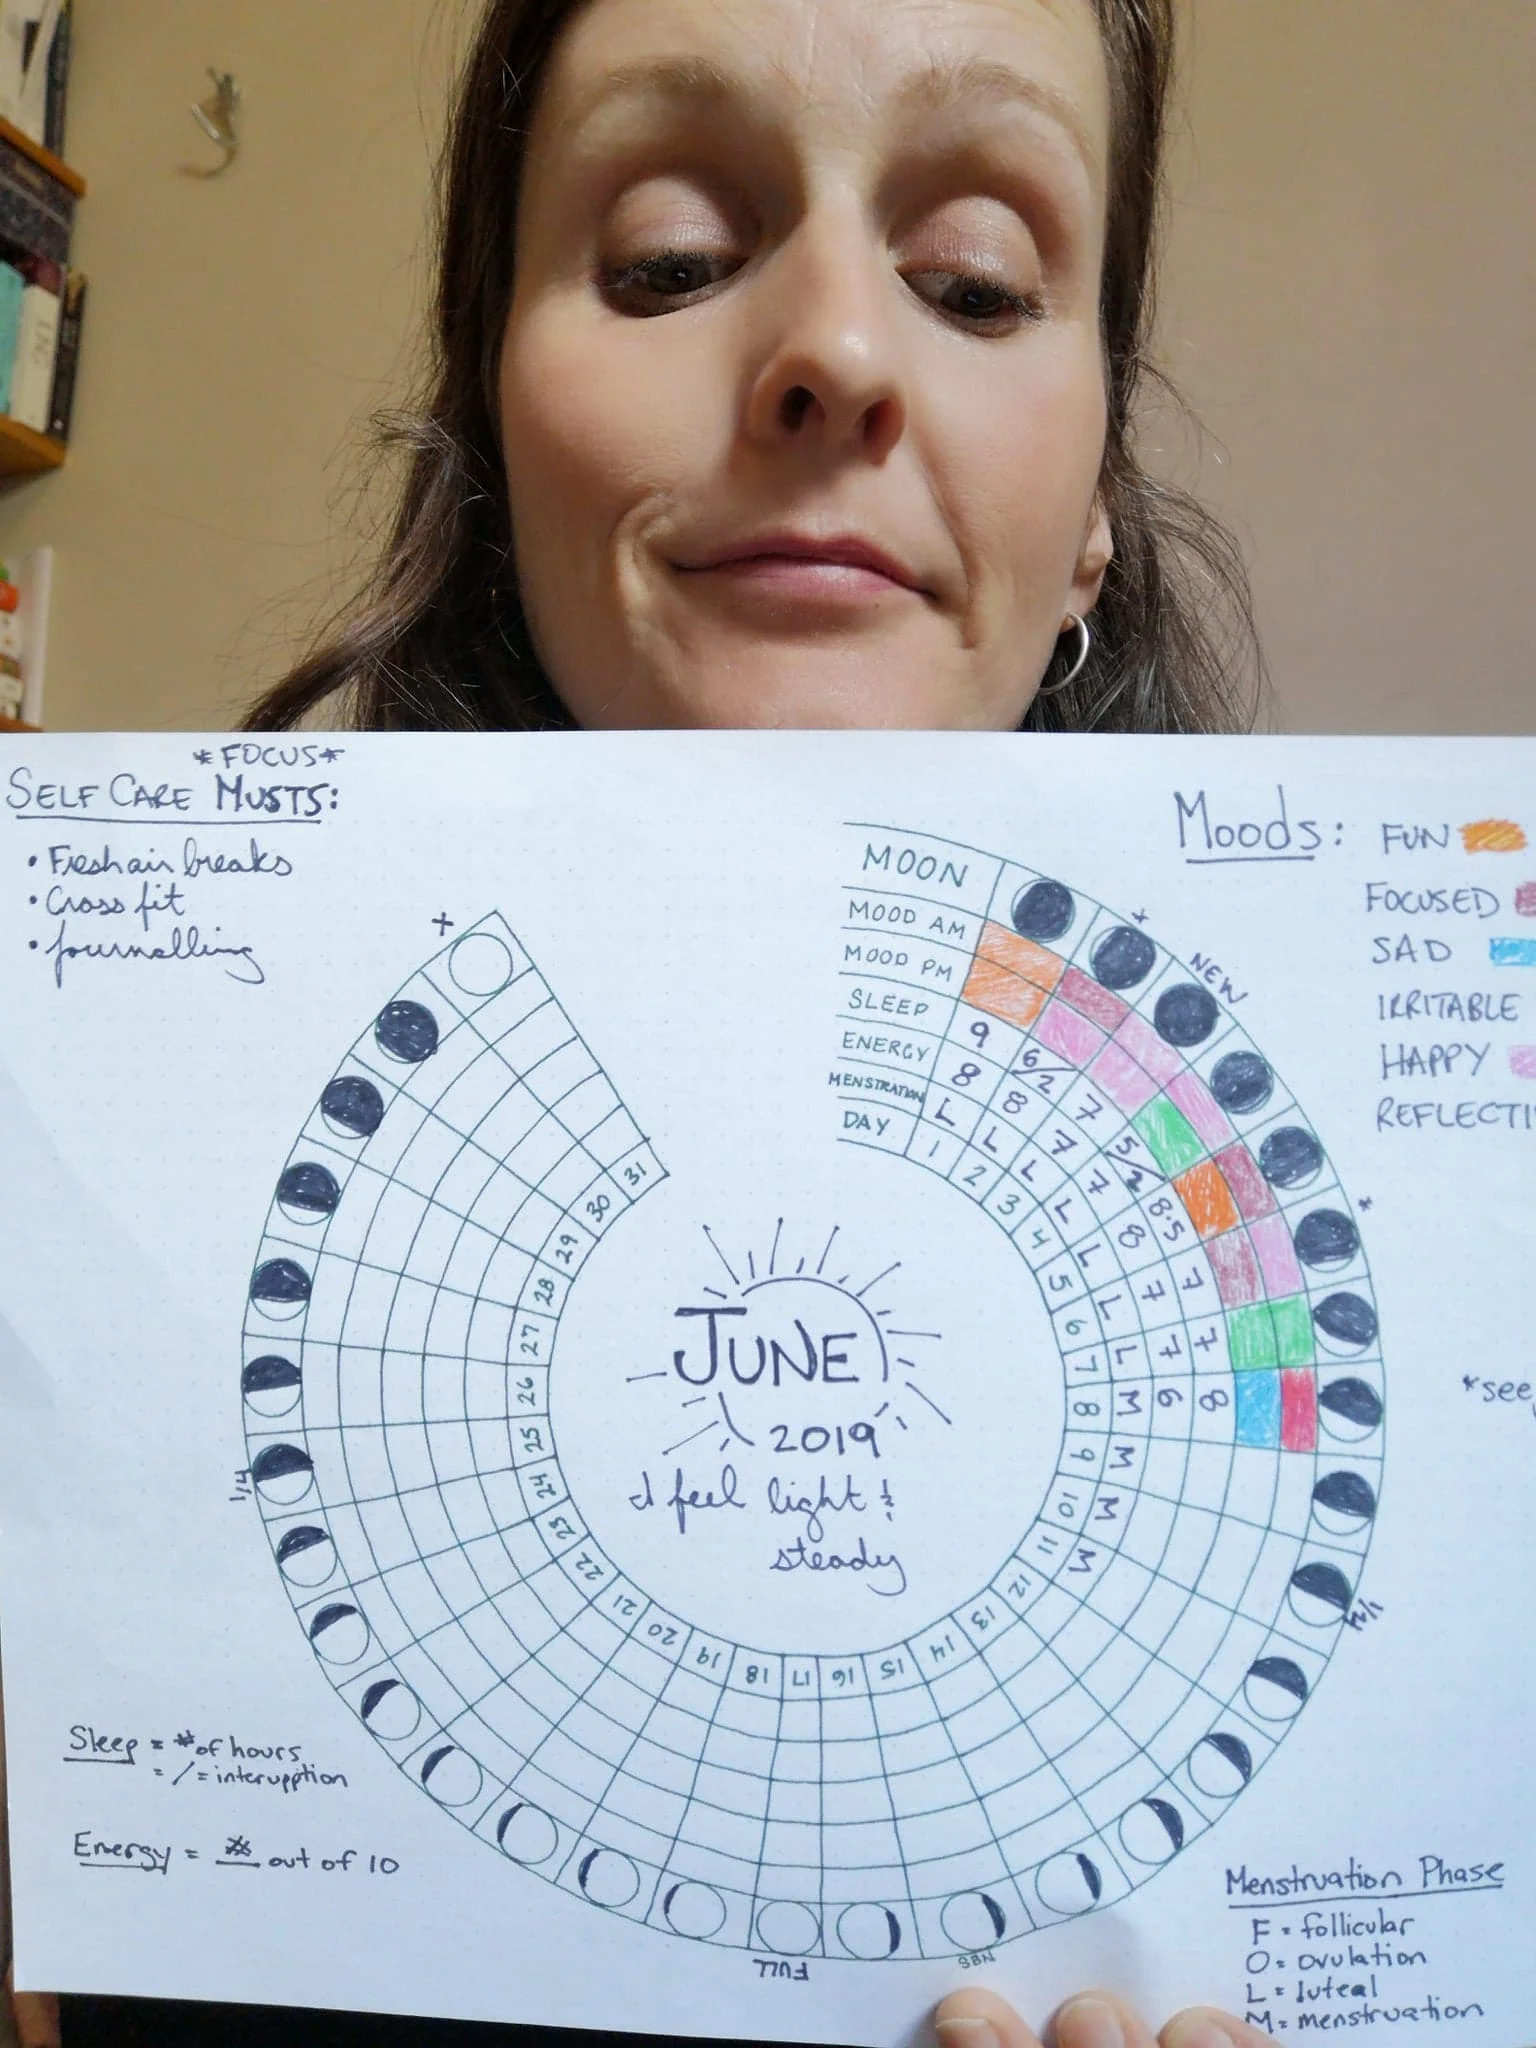 *FOCUS*
SELF CARE MUSTS:
• Fresh air breaks
• Cross fit
• journalling
Moods: FUN
FOCUSED
SAD
IRRITABLE
HAPPY
REFLECTI
MOON
MOOD AM
MOOD PM
SLEEP 9 6/2 7 5/2 8.5 7 7 8
ENERGY 8 8 7 7 8 7 7 6
MENSTRATION L L L L L L L M M M M
DAY 1 2 3 4 5 6 7 8 9 10 11 12 13 14 15 16 17 18 19 20 21 22 23 24 25 26 27 28 29 30 31
*
NEW
*
1/4
NBS
FULL
1/4
+
JUNE
2019
I feel light &
steady
*see
Sleep = # of hours
= / = interupption
Energy = # out of 10
Menstruation Phase
F = follicular
O = ovulation
L = luteal
M = menstruation